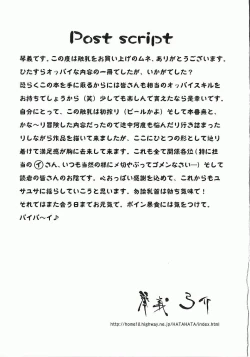 Post script
琴義です。この度は融乳をお買い上げのムネ、ありがとうございます。
ひたすらオッパイな内容の一冊でしたが、いかがでした？
恐らくこの本を手に取るからには皆さんも相当のオッパイスキルを
お持ちでしょうから（笑）少しでも楽しんで貰えたなら是非いです。
自分にとって、この融乳は初搾り（ビールかよ）そして本番義と、
かな〜り冒険した内容だったので途中何度も悩んだり行き詰まった
りしながら作品を描いて来ましたが、ここにひとつの形として辿り
着けて満足感が胸に去来して来ます。これも全て関係各位（特に担
当の イ さん、いつも当然の様にメ切やぶってゴメンなさい…）そして
読者の皆さんのお陰です。心おっぱい感謝を込めて、これからもユ
サユサに揺らしていこうと思います。勿論乳首は勃ち気味で！
それではまた会う日までお元気で、ボイン暴食には気をつけて。
バイパ〜イ♪
http://home10.highway.ne.jp/HATAHATA/index.htm